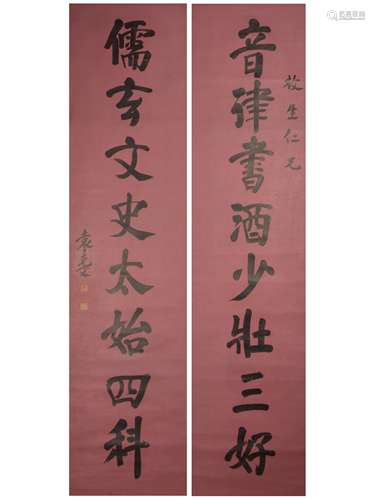 生仁兄
音律書酒少壯三好
儒玄文史太始四科